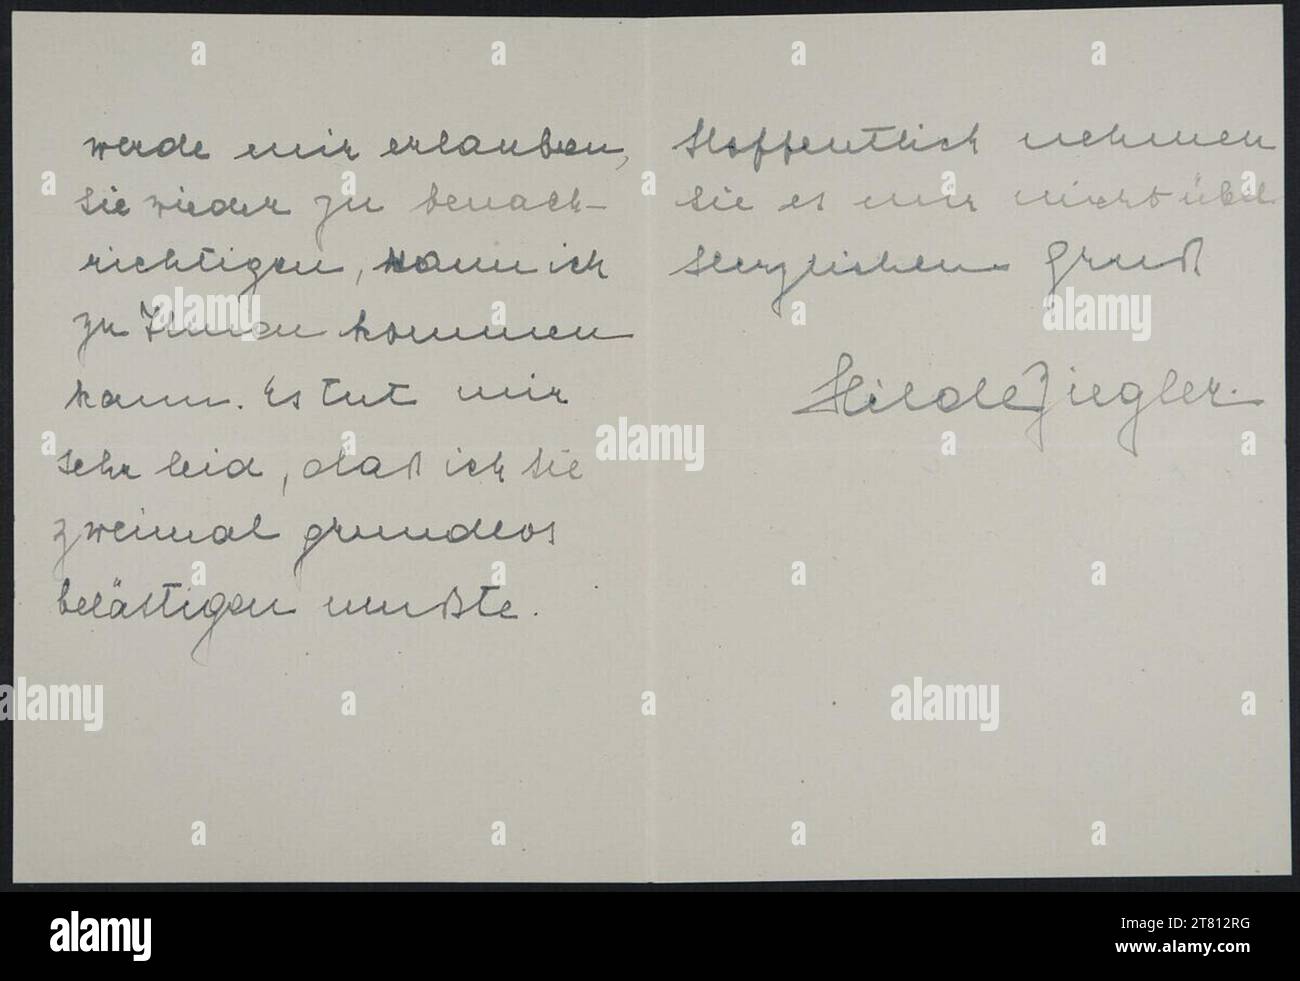 werde mir erlauben,
Sie wieder zu benach-
richtigen, wann ich
zu Ihnen kommen
kann. Es tut mir
sehr leid, daß ich Sie
zweimal grundlos
belästigen mußte.
Hoffentlich nehmen
Sie es mir nicht übel
Herzlichen Gruß
Hilde Ziegler.
alamy
Image ID: 2T812RG
www.alamy.com